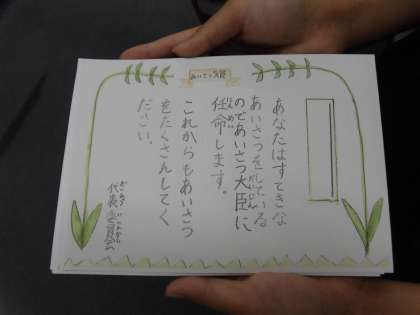 あいさつ大臣
あなたはすてきな
あいさつをしている
のであいさつ大臣に
任命します。
これからもあいさつ
をたくさんしてく
ださい。
代表委員会